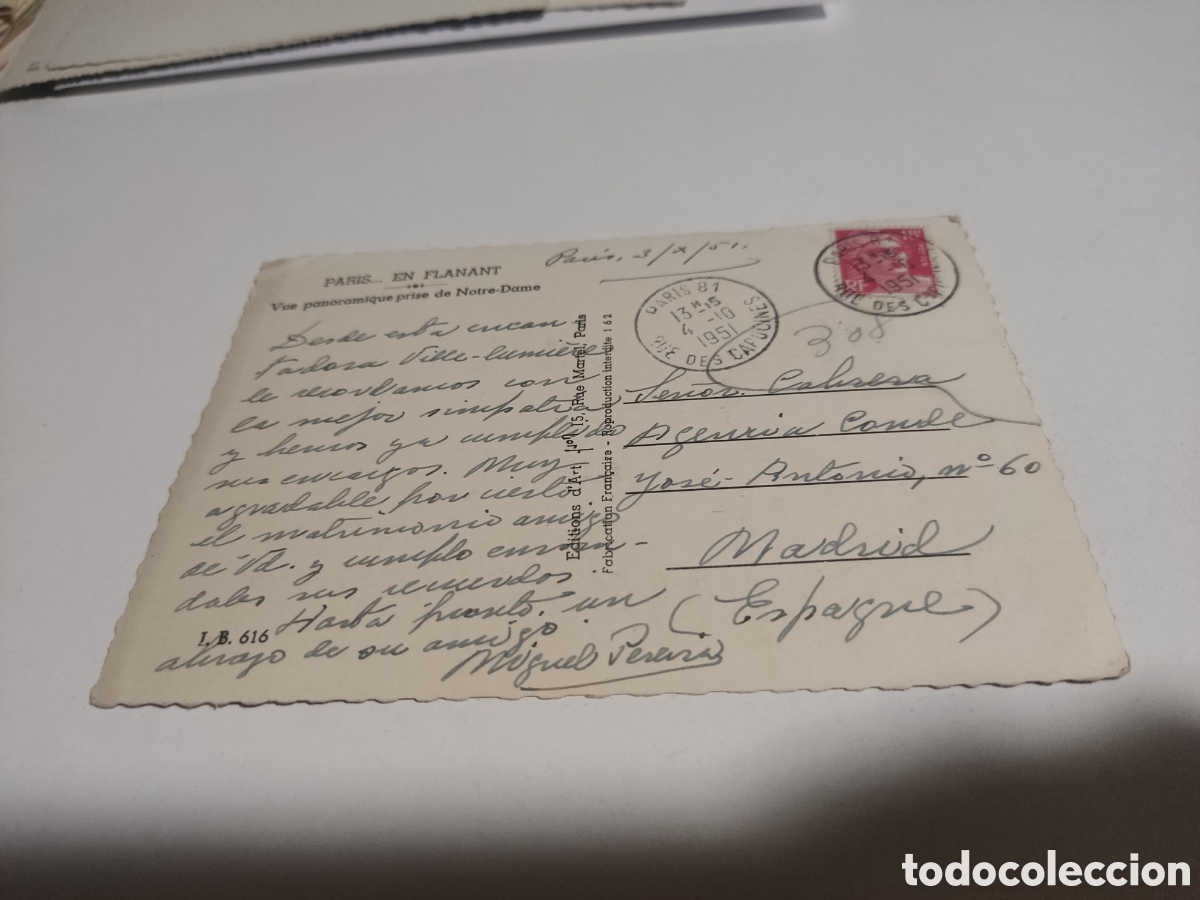 PARIS... EN FLANANT
Vue panoramique prise de Notre-Dame
Paris, 3/X/51.
Desde esta encan-
tadora Ville-lumière
le recordamos con
la mejor simpatía
y hemos ya cumplido
sus encargos. Muy
agradable por cierto
el matrimonio amigo
de Vd. y cumplo
sus recuerdos
Hasta pronto. un
abrazo de su amigo
Miguel Pereira
I. B. 616
Editions d'Art 15, Rue Martel, Paris
Fabrication Française - Reproduction interdite 162
PARIS 81
13 H 15
4 -10
1951
RUE DES CAPUCINES
PARIS
1951
RUE DES
RF
308
Señor. Cabrera
Agencia Conde
José-Antonio, nº 60
Madrid
(Espagne)
todocoleccion